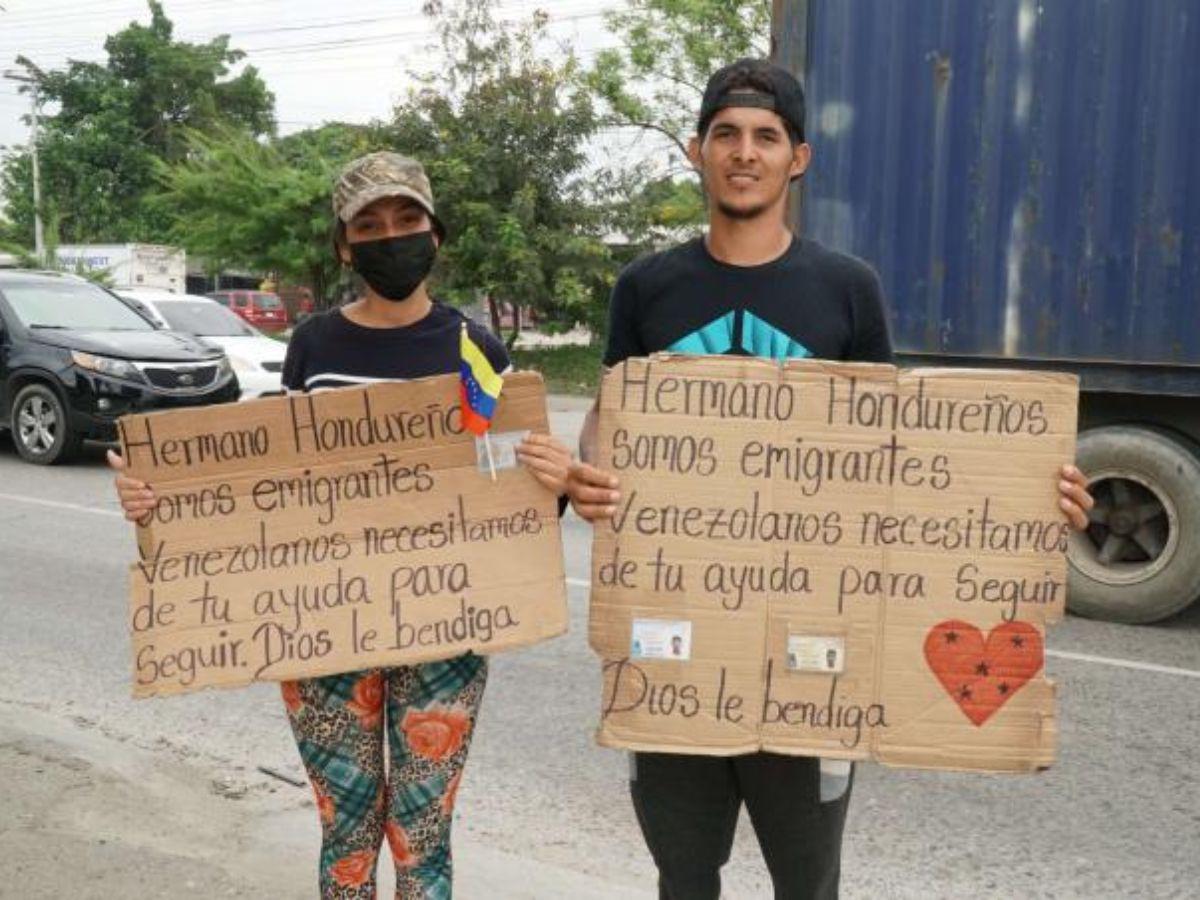 Hermano Hondureño
Somos emigrantes
Venezolanos necesitamos
de tu ayuda para
Seguir. Dios le bendiga
Hermano Hondureños
somos emigrantes
Venezolanos necesitamos
de tu ayuda para Seguir
Dios le bendiga